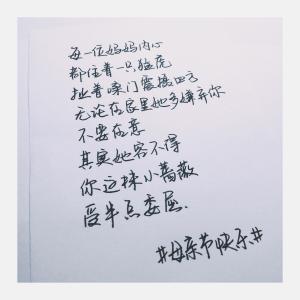 每一位妈妈内心
都住着一只猛虎
扯着嗓门震撼四方
无论在家里她多嫌弃你
不要在意
其实她容不得
你这棵小蔷薇
受半点委屈.
#母亲节快乐#